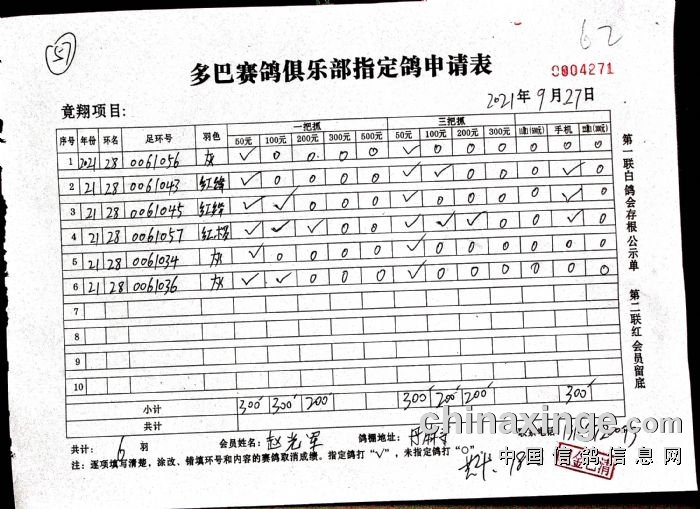 57
62
多巴赛鸽俱乐部指定鸽申请表
0004271
竟翔项目:
2021年9月27日
序号 年份 环名 足环号 羽色 一把抓 三把抓
50元 100元 200元 300元 500元 50元 100元 200元 300元 手机
1 2021 28 0061056 灰 ✓ 0 0 0 0 ✓ 0 0 0 0 0 0
2 21 28 0061043 红绛 ✓ 0 0 0 0 ✓ ✓ 0 0 0 ✓ 0
3 21 28 0061045 红绛 ✓ ✓ 0 0 0 ✓ 0 0 0 0 ✓ 0
4 21 28 0061057 红楞 ✓ ✓ ✓ 0 0 ✓ ✓ ✓ 0 0 ✓ 0
5 21 28 0061034 灰 ✓ 0 0 0 0 ✓ 0 0 0 0 0 0
6 21 28 0061036 灰 ✓ ✓ 0 0 0 ✓ 0 0 0 0 0 0
7
8
9
10
小计 300 300 200 300 200 200 300
共计
共计: 6 羽 会员姓名: 赵光军 鸽棚地址:
注:逐项填写清楚,涂改、错填环号和内容的赛鸽取消成绩。指定鸽打“√”,未指定鸽打“O”。
第一联白鸽会存根公示单 第二联红会员留底
chinaxinge.com
中国信鸽信息网